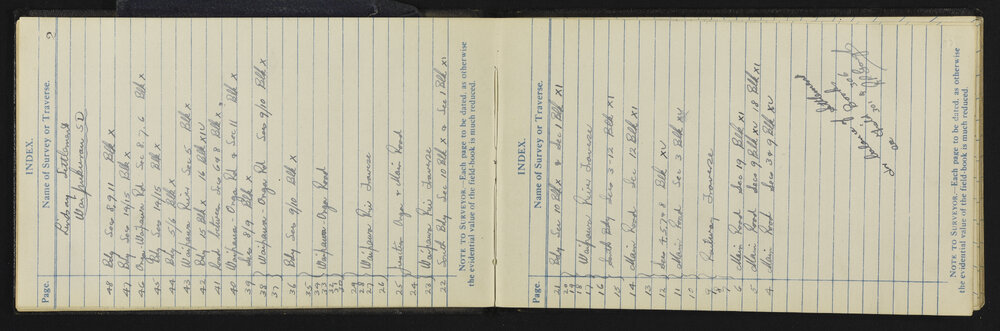 2
INDEX.
Page. Name of Survey or Traverse.
Settlement
Waipukurau SD
48 Bdy Secs 8, 9, 11 Blk X
47 Bdy Secs 14/15 Blk X
46 Onga-Waipawa Rd Sec 8, 7, 6 Blk X
45 Bdy Secs 14/15 Blk X
44 Bdy 5/6 Blk X
43 Waipawa River Sec 5 Blk X
42 Bdy 15 Blk X 16 Blk XIV
41 Road between Secs 6 & 8 Blk X
40 Waipawa-Onga Rd & Sec 11 Blk X
39 Secs 8/9 Blk X
38 Waipawa-Onga Rd Secs 9/10 Blk X
37
36 Bdy Secs 9/10 Blk X
35
34
33 Waipawa Onga Road
30
29
28
27 Waipawa Riv Traverse
26
25 Junction Onga & Main Road
24
23 Waipawa Riv Traverse
22 South Bdy Sec 10 Blk X & Sec 1 Blk XI
NOTE TO SURVEYOR.—Each page to be dated, as otherwise
the evidential value of the field-book is much reduced.
INDEX.
Page. Name of Survey or Traverse.
21 Bdy Sec 10 Blk X & Sec 1 Blk XI
20
19
18 Waipawa River Traverse
17
16 South Bdy Secs 3-12 Blk XI
15
14 Main Road Sec 12 Blk XI
13
12 Secs 4, 5, 7 & 8 Blk XV
11 Main Road Sec 3 Blk XV
10
9 Railway Traverse
8
7
6 Main Road Sec 19 Blk XI
5 Main Road Sec 9 Blk XV 18 Blk XI
4 Main Road Secs 3 & 9 Blk XV
NOTE TO SURVEYOR.—Each page to be dated, as otherwise
the evidential value of the field-book is much reduced.